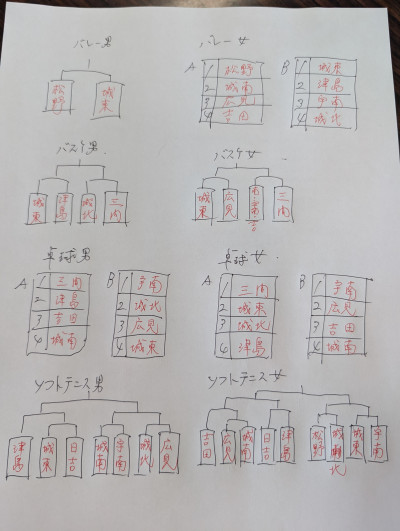 バレー男
松野 城東
バレー女
A
1 松野
2 城南
3 広見
4 吉田
B
1 城東
2 津島
3 宇南
4 城北
バスケ男
城東 津島 城北 三間
バスケ女
城東 広見 三間
卓球男
A
1 三間
2 津島
3 吉田
4 城南
B
1 宇南
2 城北
3 広見
4 城東
卓球女
A
1 三間
2 城東
3 城北
4 津島
B
1 宇南
2 広見
3 吉田
4 城南
ソフトテニス男
津島 城東 日吉 城南 宇南 城北 広見
ソフトテニス女
吉田 広見 城南 日吉 津島 松野 城北 城東 宇南